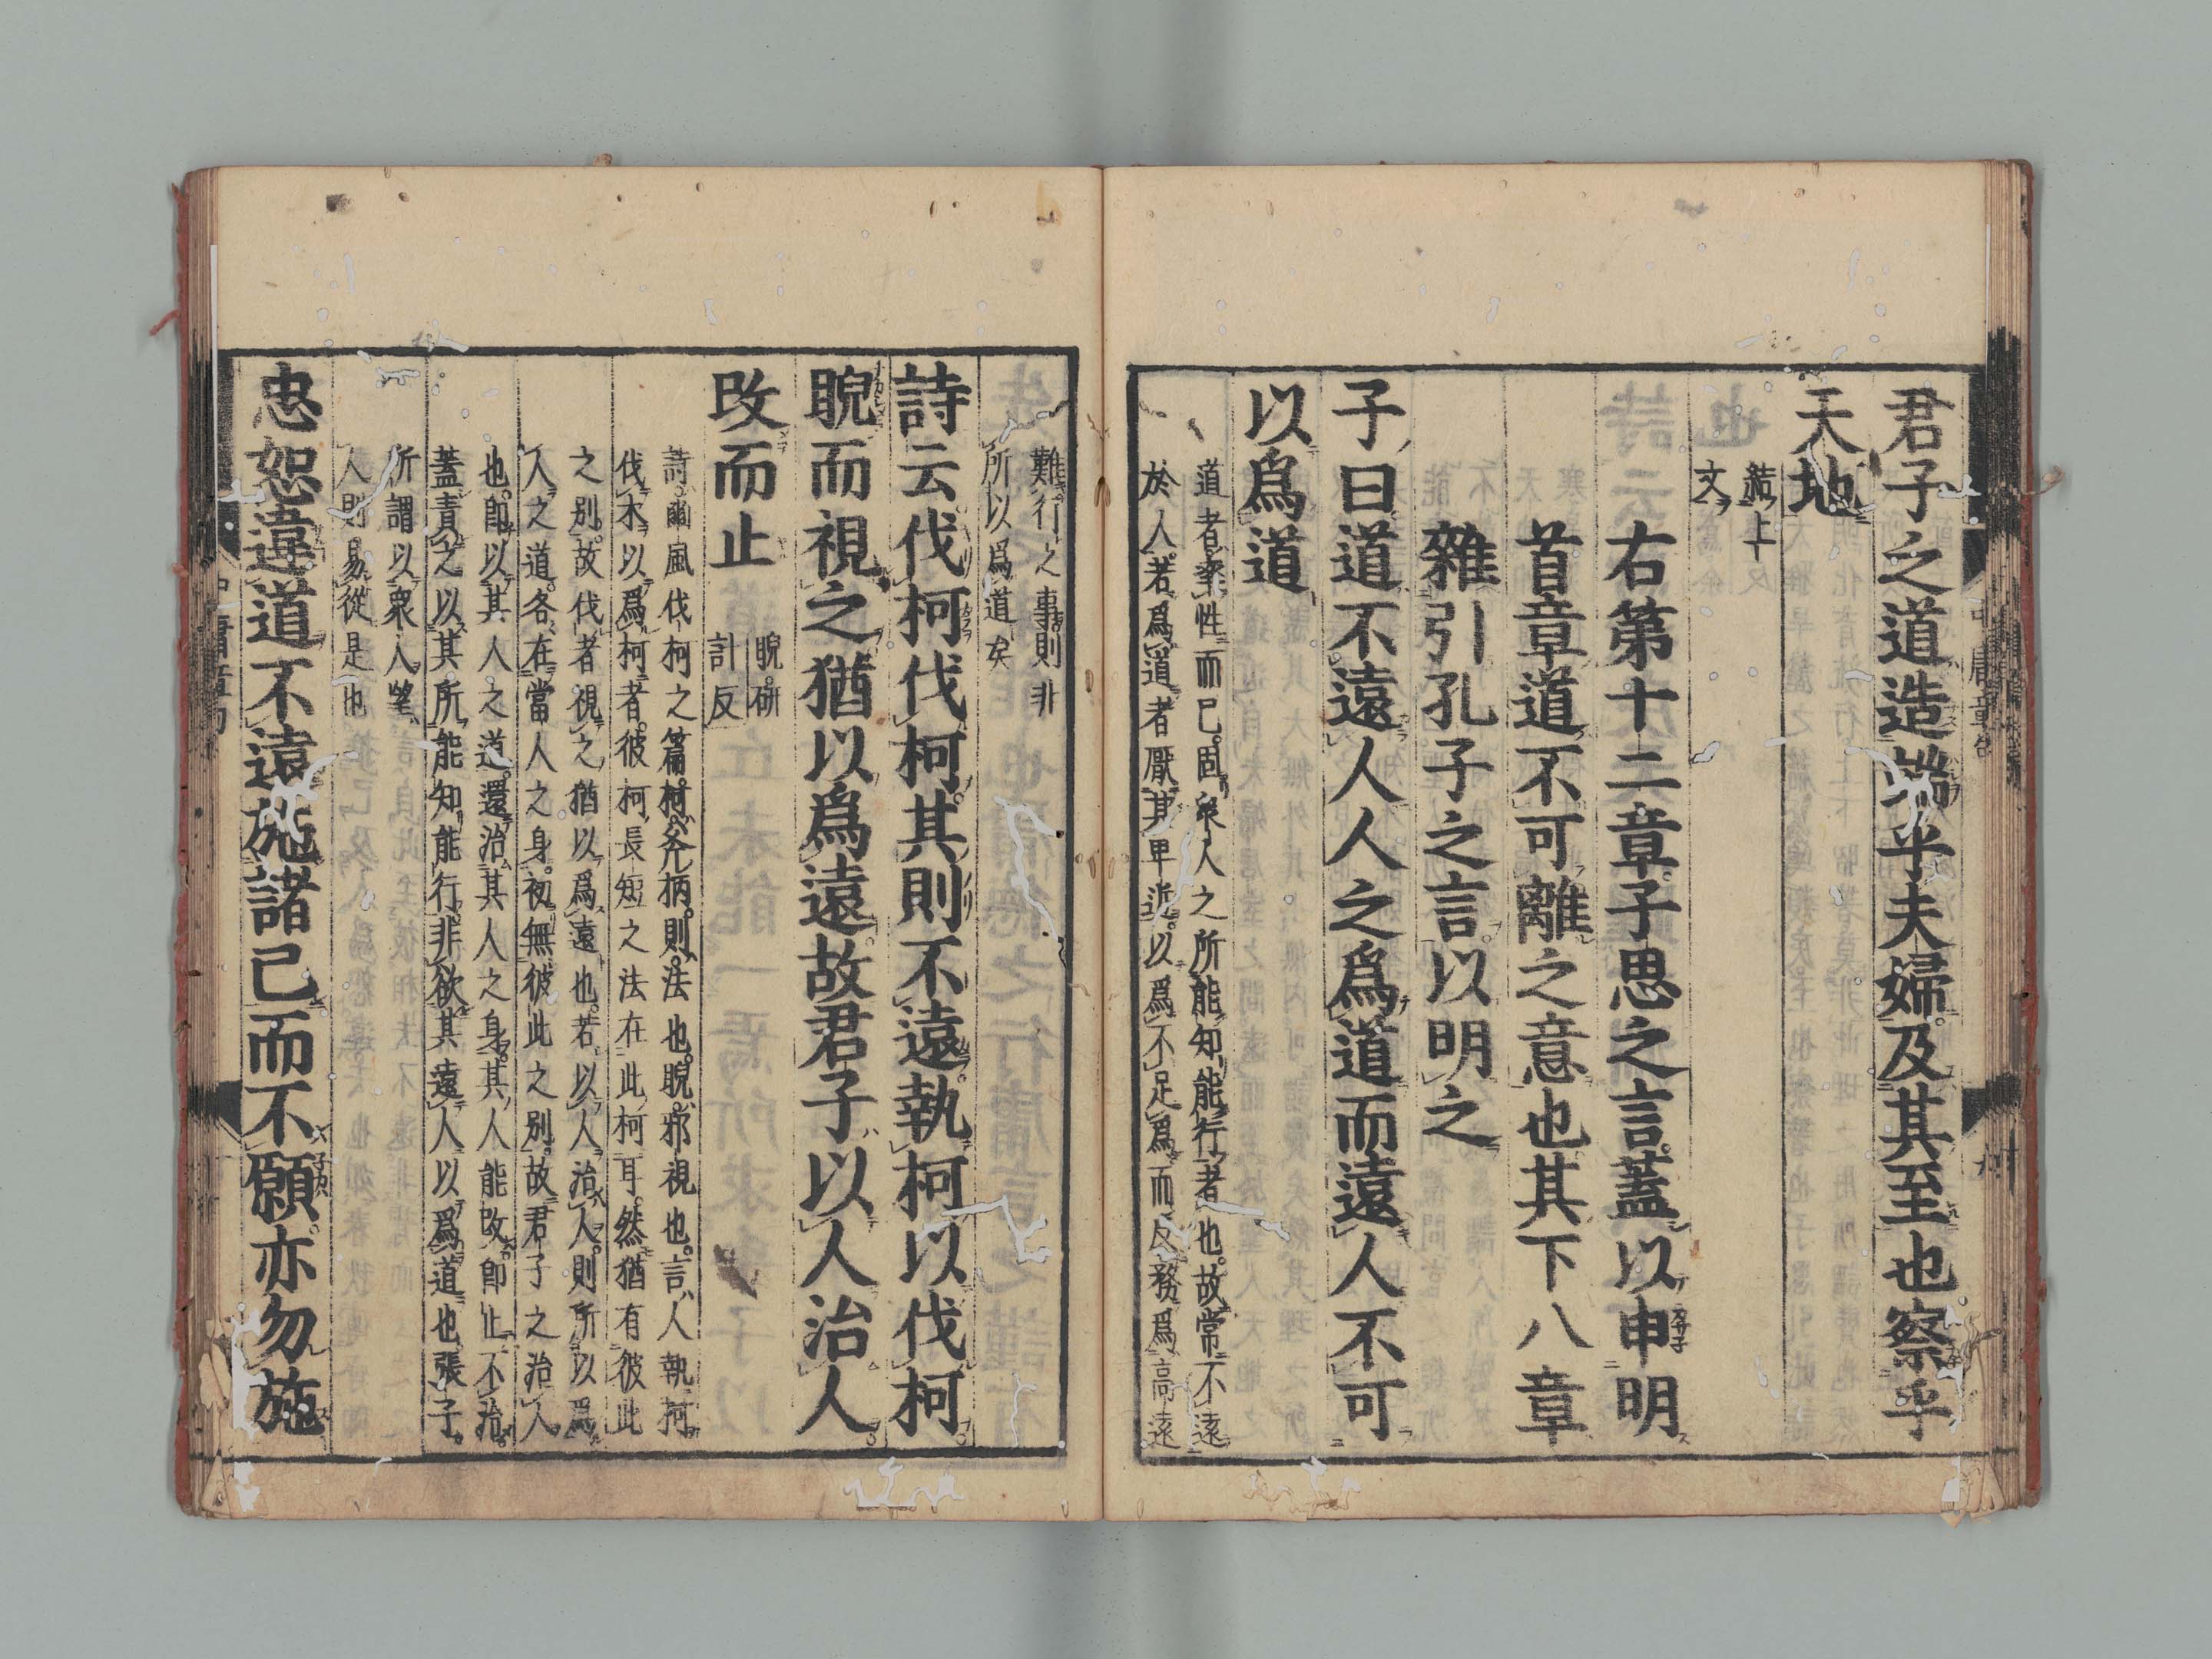 君子之道造端乎夫婦及其至也察乎
天地
結上
文
右第十二章子思之言蓋以申明
首章道不可離之意也其下八章
雜引孔子之言以明之
子曰道不遠人人之爲道而遠人不可
以爲道
道者率性而已固衆人之所能知能行者也故常不遠
於人若爲道者厭其卑近以爲不足爲而反務爲高遠
難行之事則非
所以爲道矣
詩云伐柯伐柯其則不遠執柯以伐柯
睨而視之猶以爲遠故君子以人治人
改而止
睨研
計反
詩豳風伐柯之篇柯斧柄則法也睨邪視也言人執柯
伐木以爲柯者彼柯長短之法在此柯耳然猶有彼此
之別故伐者視之猶以爲遠也若以人治人則所以爲
人之道各在當人之身初無彼此之別故君子之治人
也卽以其人之道還治其人之身其人能改卽止不治
蓋責之以其所能知能行非欲其遠人以爲道也張子
所謂以衆人望
人則易從是也
忠恕違道不遠施諸己而不願亦勿施